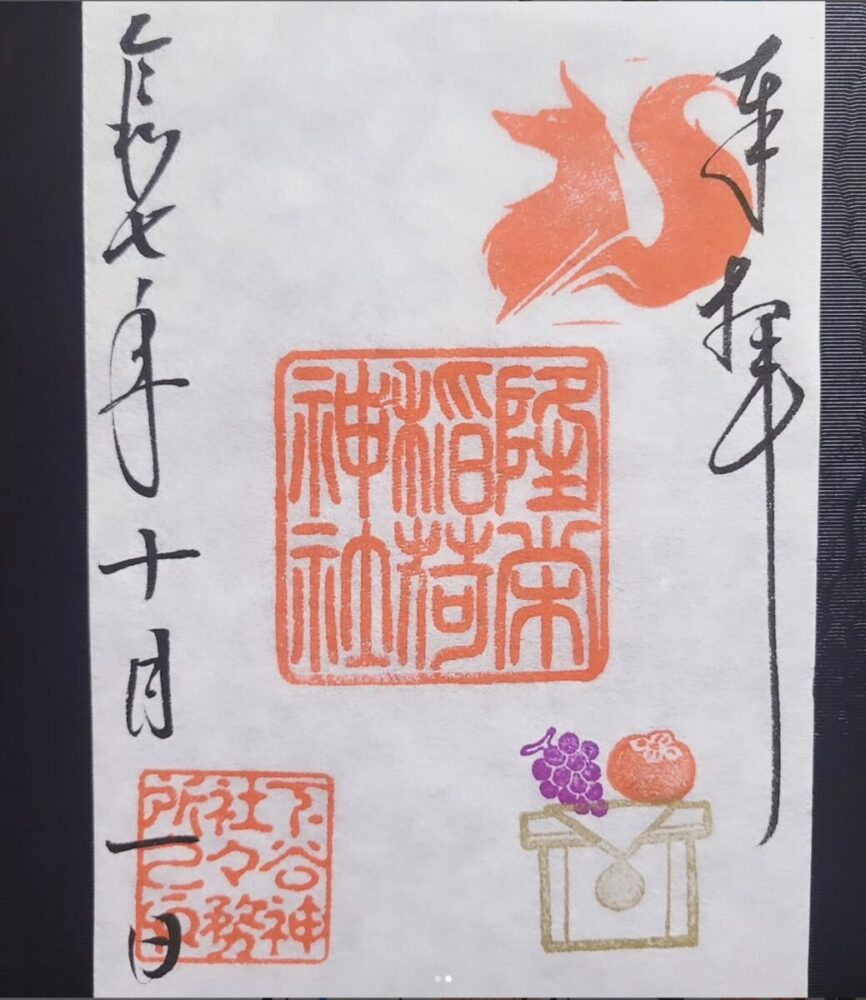 奉拝
隆栄
稲荷
神社
令和七年十月一日
下谷神
社々務
所之印